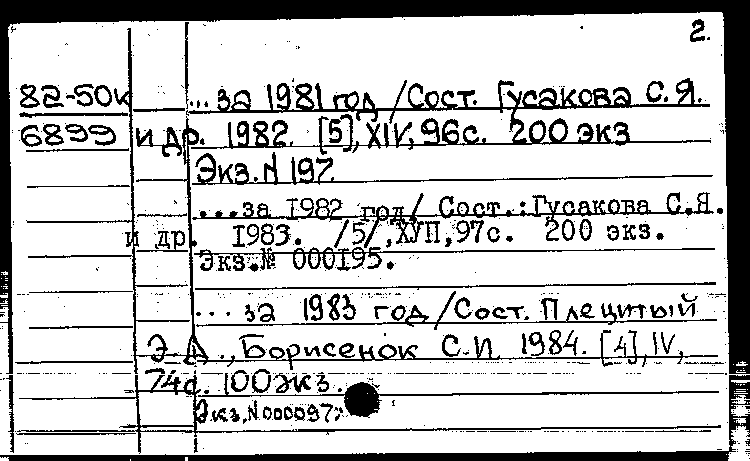 2.
82-50к ...за 1981 год /Сост. Гусакова С.Я.
6899 и др. 1982. [5], XIV, 96с. 200 экз
Экз. N 197.
...за I982 год/ Сост.:Гусакова С.Я.
и др. I983. /5/,ХУП,97с. 200 экз.
Экз.№ 000I95.
... за 1983 год/Сост. Плецитый
Э.А., Борисенок С.И. 1984. [4], IV,
74с. 100экз.
Экз. N 000097